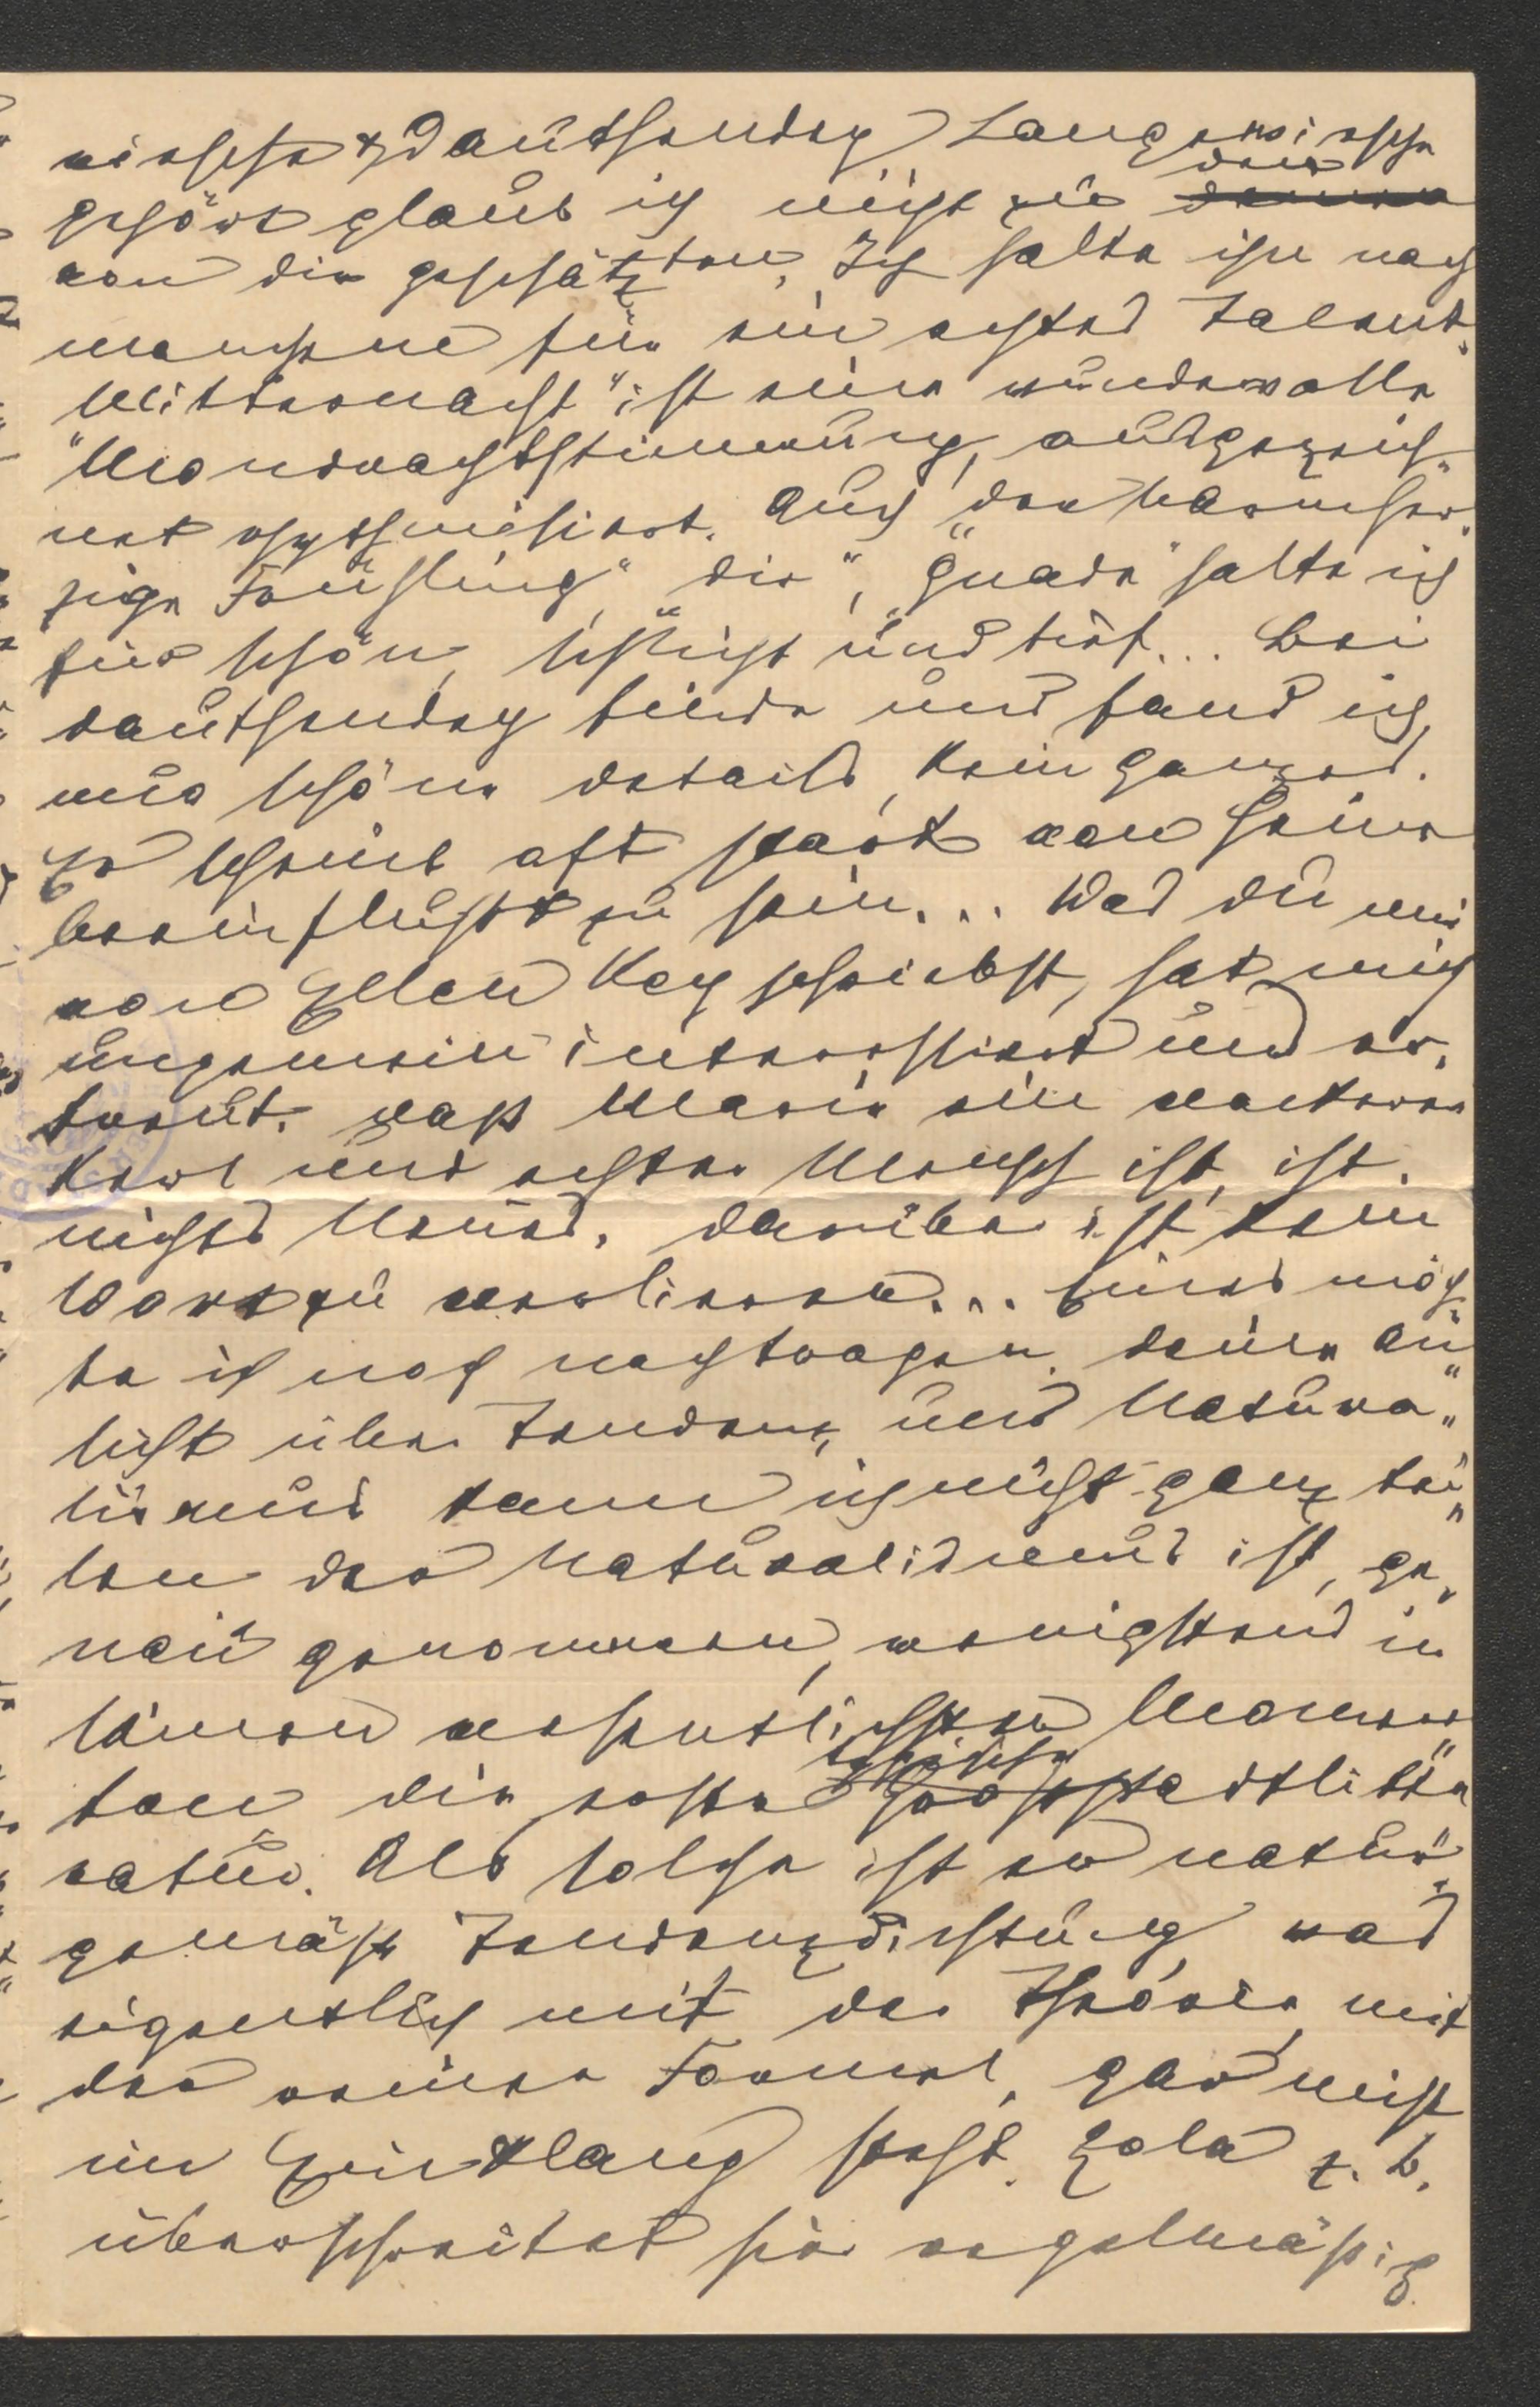 nische & Dauthendey Langenvische
gehört glaub ich nicht zu den
von dir geschätzten, Ich halte ihn nach
manchem für ein echtes Talent.
Mitternacht" ist eine wundervolle
"Mondnachtstimmung, ausgezeich-
net rhythmisiert. Auch "der Barmher-
zige Frühling", die", Gnade" halte ich
für schön, schlicht und tief... Bei
Dauthendey finde und fand ich
nur schöne Details, kein Ganzes.
Er scheint oft stark von Heine
beeinflußt zu sein... Was du mir
von Ellen Key schreibst, hat mich
ungemein interessiert und er-
freut. daß Marie ein wackerer
Kerl und echter Mensch ist, ist
nichts Neues. darüber ist kein
Wort zu verlieren... Eines möch-
te ich noch nachtragen. deine An-
sicht über Tendenz und Natura-
lismus kann ich nicht ganz tei-
len der Naturalismus ist, ge-
nau genommen, wenigstens in
seinen wesentlichsten Momen-
ten die erste typische Großstadtlitte-
ratur. Als solche ist er natur-
gemäß Tendenzdichtung was
eigentlich mit der Theorie, mit
der reinen Formel, gar nicht
im Einklang steht. Zola z. B.
überschreitet sie regelmäßig